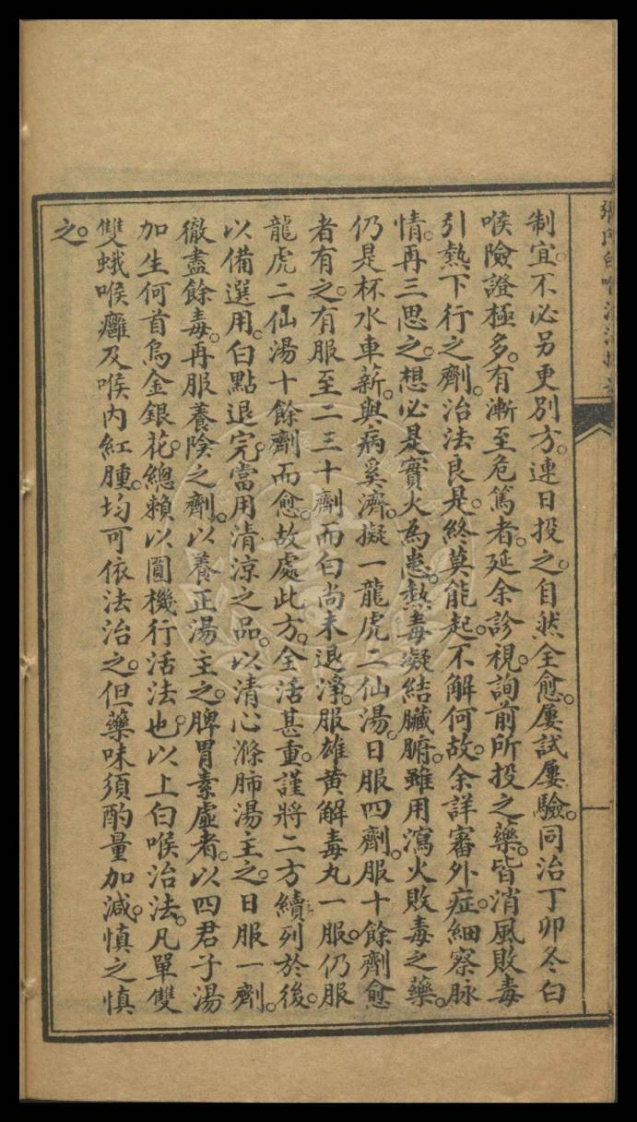 制宜。不必另更別方。連日投之。自然全愈。屢試屢驗。同治丁卯冬白
喉險證極多。有漸至危篤者。延余診視。詢前所投之藥。皆消風敗毒
引熱下行之劑。治法良是。終莫能起。不解何故。余詳審外症。細察脉
情。再三思之。想必是實火為患。熱毒凝結臟腑。雖用瀉火敗毒之藥。
仍是杯水車薪。與病奚濟。擬一龍虎二仙湯。日服四劑。服十餘劑愈
者有之。有服至二三十劑而白尚未退淨。服雄黃解毒丸一服。仍服
龍虎二仙湯十餘劑而愈。故處此方。全活甚重。謹將二方續列於後。
以備選用。白點退完。當用清涼之品。以清心滌肺湯主之。日服一劑。
徹盡餘毒。再服養陰之劑。以養正湯主之。脾胃素虛者。以四君子湯
加生何首烏金銀花。總賴以圓機行活法也。以上白喉治法。凡單雙
雙蛾喉癰及喉內紅腫。均可依法治之。但藥味須酌量加減。慎之慎
之。